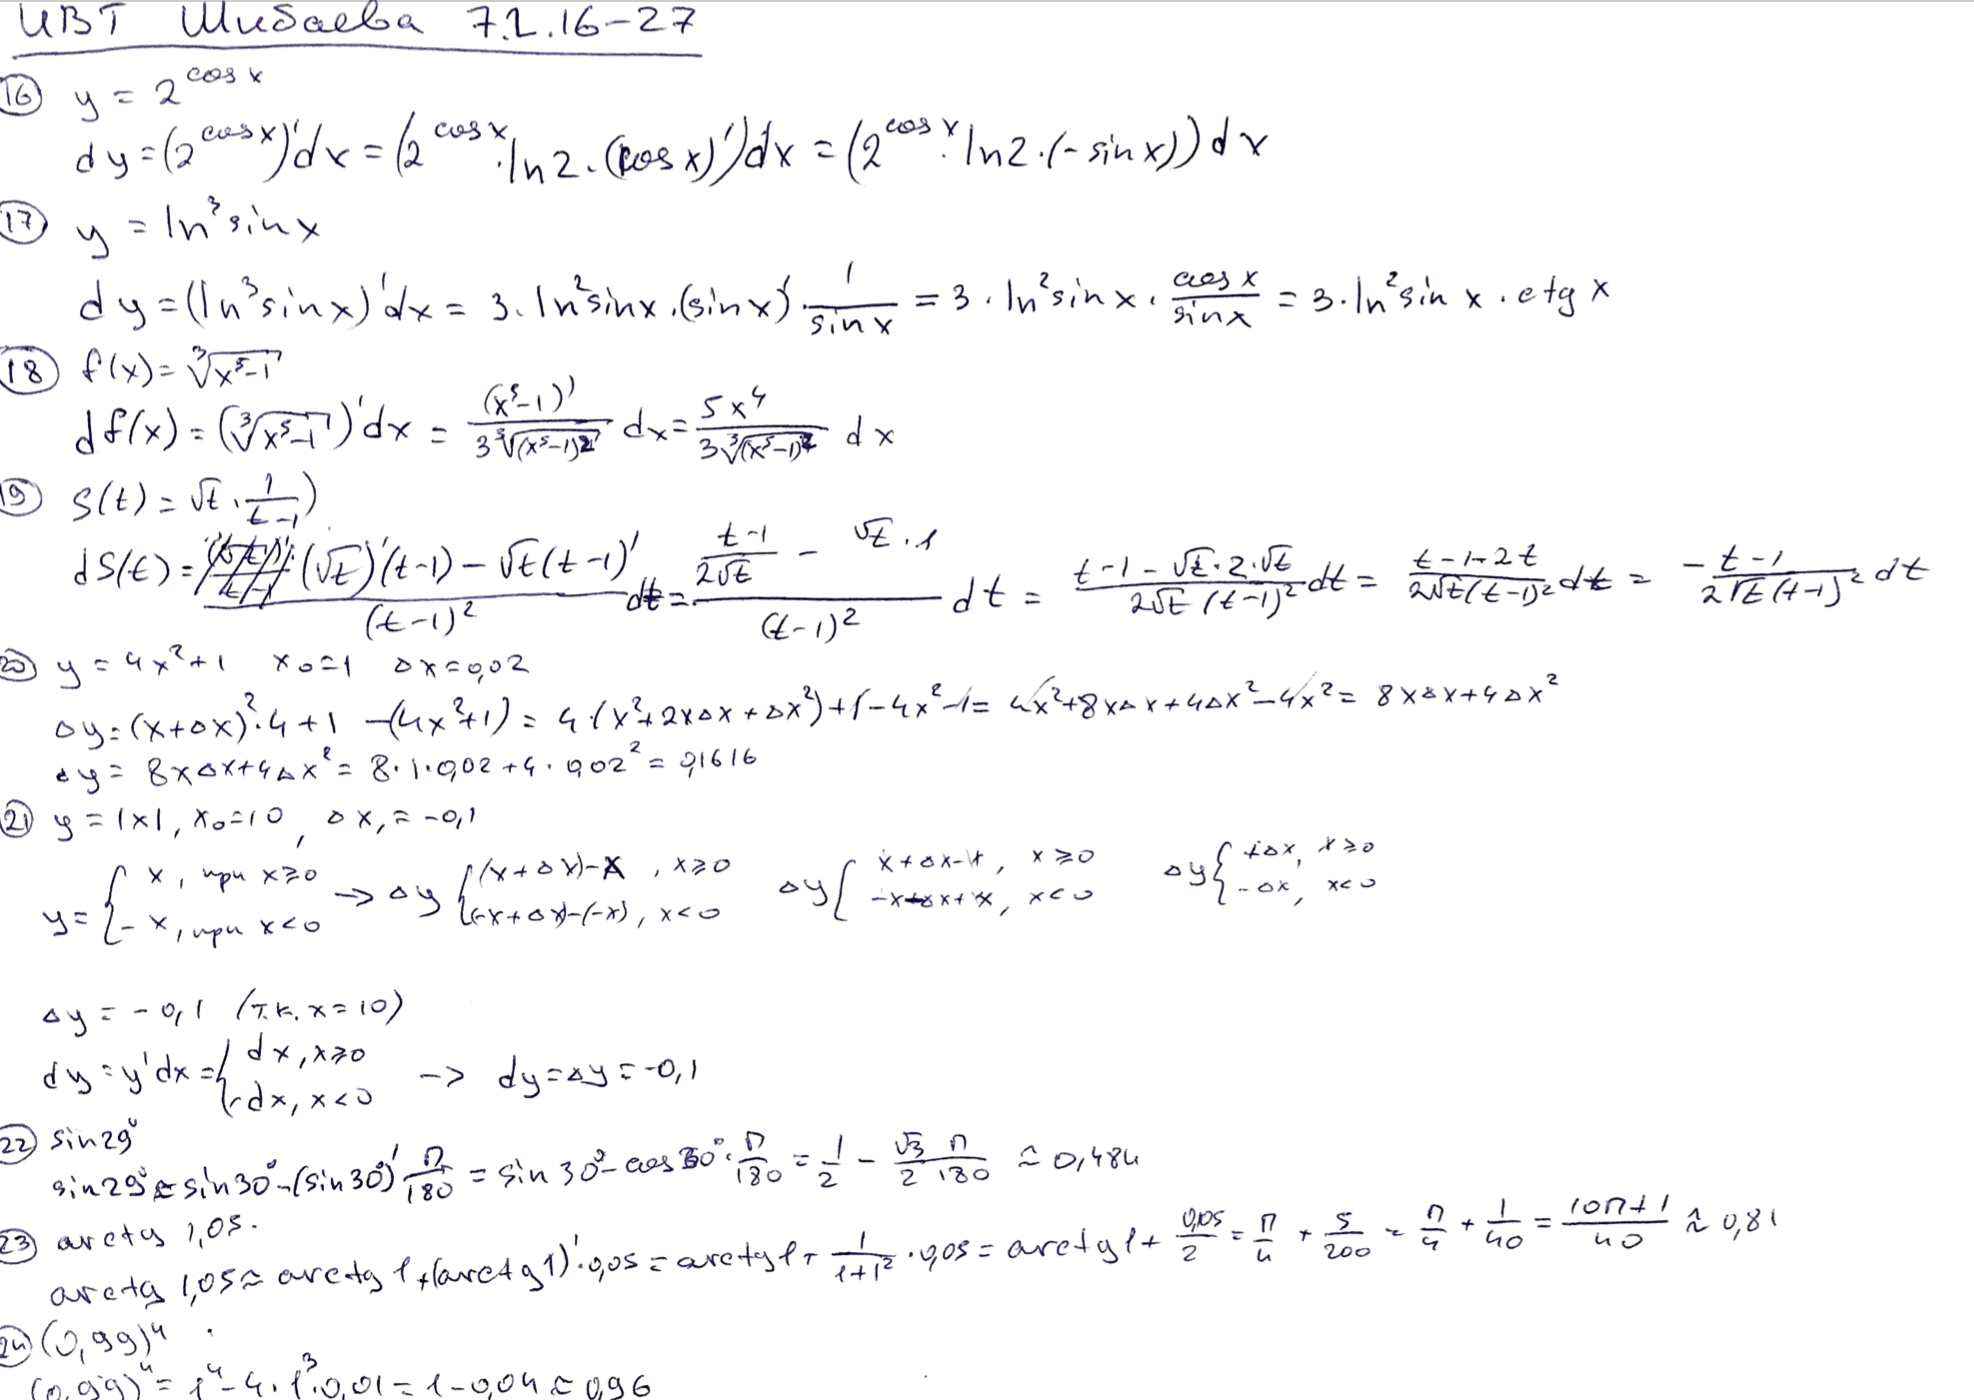 ИВТ Шибаева 7.2.16-27
16 y = 2^cos x
dy = (2^cos x)'dx = (2^cos x · ln2 · (cos x)')dx = (2^cos x · ln2 · (- sin x)) dx
17 y = ln³ sin x
dy = (ln³ sin x)'dx = 3 · ln² sin x · (sin x)' · 1/sin x = 3 · ln² sin x · cos x/sin x = 3 · ln² sin x · ctg x
18 f(x) = ∛(x⁵-1)
df(x) = (∛(x⁵-1))'dx = (x⁵-1)'/(3∛(x⁵-1)²) dx = 5x⁴/(3∛(x⁵-1)²) dx
19 S(t) = √t · 1/(t-1))
dS(t) = ((√t)'(t-1) - √t(t-1)')/(t-1)² dt = ((t-1)/(2√t) - √t · 1)/(t-1)² dt = (t-1-√t·2·√t)/(2√t (t-1)²) dt = (t-1-2t)/(2√t(t-1)²) dt = (-t-1)/(2√t(t-1)²) dt
20 y = 4x²+1 x₀=1 Δx=0,02
Δy = (x+Δx)²·4+1 -(4x²+1) = 4·(x²+2xΔx+Δx²)+1-4x²-1 = 4x²+8xΔx+4Δx²-4x² = 8xΔx+4Δx²
Δy = 8xΔx+4Δx² = 8·1·0,02+4·0,02² = 0,1616
21 y = |x|, x₀=10, Δx, = -0,1
y = { x, при x≥0 → Δy { (x+Δx)-x, x≥0 Δy { x+Δx-x, x≥0 Δy { +Δx, x≥0
- x, при x<0 (-x+Δx)-(-x), x<0 -x+Δx+x, x<0 -Δx, x<0
Δy = -0,1 (т.к. x=10)
dy = y'dx = { dx, x≥0 -> dy=Δy=-0,1
-dx, x<0
22 sin29°
sin29° ≈ sin30°-(sin30°)' π/180 = sin 30°- cos 30° · π/180 = 1/2 - √3/2 π/180 ≈ 0,484
23 arctg 1,05.
arctg 1,05 ≈ arctg 1+(arctg 1)'·0,05 = arctg 1+ 1/(1+1²) · 0,05 = arctg 1+ 0,05/2 = π/4 + 5/200 = π/4 + 1/40 = (10π+1)/40 ≈ 0,81
24 (0,99)⁴
(0,99)⁴ = 1⁴-4·1³·0,01 = 1-0,04 ≈ 0,96